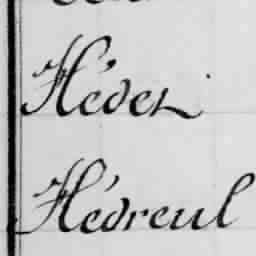 Hédez
Hédreul